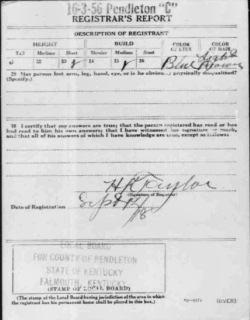 16-3-56 Pendleton "C"
REGISTRAR'S REPORT
DESCRIPTION OF REGISTRANT
HEIGHT BUILD COLOR OF EYES COLOR OF HAIR
Tall Medium Short Slender Medium Stout
21 22 23 24 25 26
Blue Brown
29 Has person lost arm, leg, hand, eye, or is he obviously physically disqualified?
(Specify.)
30 I certify that my answers are true; that the person registered has read or has
had read to him his own answers; that I have witnessed his signature or mark,
and that all of his answers of which I have knowledge are true, except as follows:
H K Taylor
(Signature of Registrar)
Date of Registration Sept 12
18
LOCAL BOARD
FOR COUNTY OF PENDLETON
STATE OF KENTUCKY
FALMOUTH, KENTUCKY
(STAMP OF LOCAL BOARD)
(The stamp of the Local Board having jurisdiction of the area in which
the registrant has his permanent home shall be placed in this box.)
(OVER)